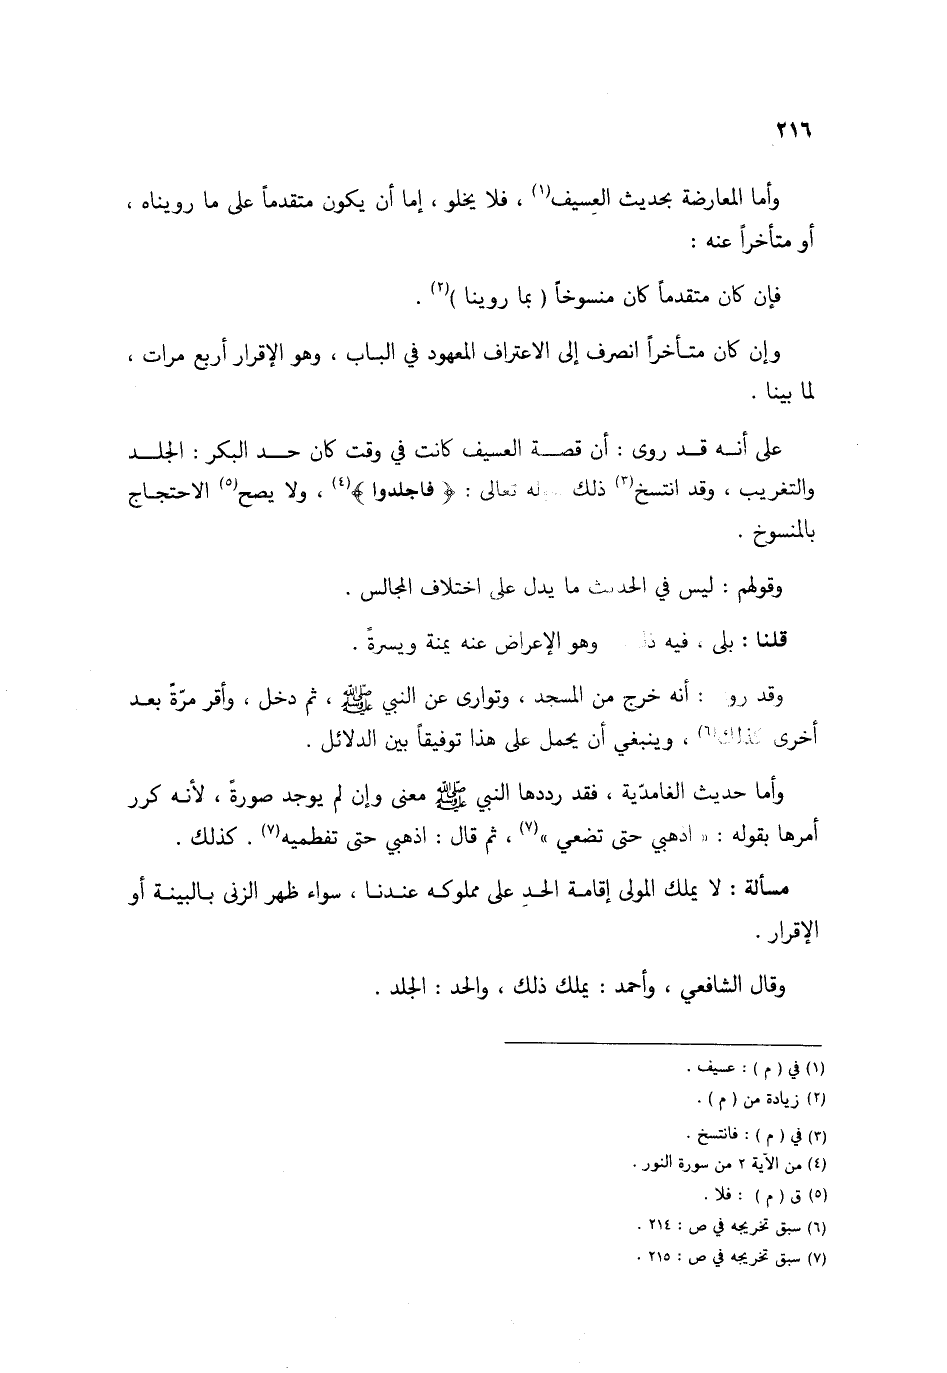 ٢١٦
وأما المعارضة بحديث العسيف(١) ، فلا يخلو ، إما أن يكون متقدماً على ما رويناه ،
أو متأخراً عنه :
فإن كان متقدماً كان منسوخاً ( بما روينا )(٢) .
وإن كان متأخراً انصرف إلى الاعتراف المعهود في الباب ، وهو الإقرار أربع مرات ،
لما بينا .
على أنه قد روى : أن قصة العسيف كانت في وقت كان حد البكر : الجلد
والتغريب ، وقد انتسخ(٣) ذلك تعالى : ﴿ فاجلدوا ﴾(٤) ، ولا يصح(٥) الاحتجاج
بالمنسوخ .
وقولهم : ليس في الحديث ما يدل على اختلاف المجالس .
قلنا : بلى ، فيه وهو الإعراض عنه يمنة ويسرةً .
وقد : أنه خرج من المسجد ، وتوارى عن النبي ﷺ ، ثم دخل ، وأقر مرّةً بعد
أخرى كذلك(٦) ، وينبغي أن يحمل على هذا توفيقاً بين الدلائل .
وأما حديث الغامدّية ، فقد رددها النبي ﷺ معنى وإن لم يوجد صورةً ، لأنه كرر
أمرها بقوله : « ادهبي حتى تضعي »(٧) ، ثم قال : اذهبي حتى تفطميه(٧) . كذلك .
مسألة : لا يملك المولى إقامة الحد على مملوكه عندنا ، سواء ظهر الزنى بالبينة أو
الإقرار .
وقال الشافعي ، وأحمد : يملك ذلك ، والحد : الجلد .
(١) في ( م ) : عسيف .
(٢) زيادة من ( م ) .
(٣) في ( م ) : فانتسخ .
(٤) من الآية ٢ من سورة النور .
(٥) ق ( م ) : فلا .
(٦) سبق تخريجه في ص : ٢١٤ .
(٧) سبق تخريجه في ص : ٢١٥ .